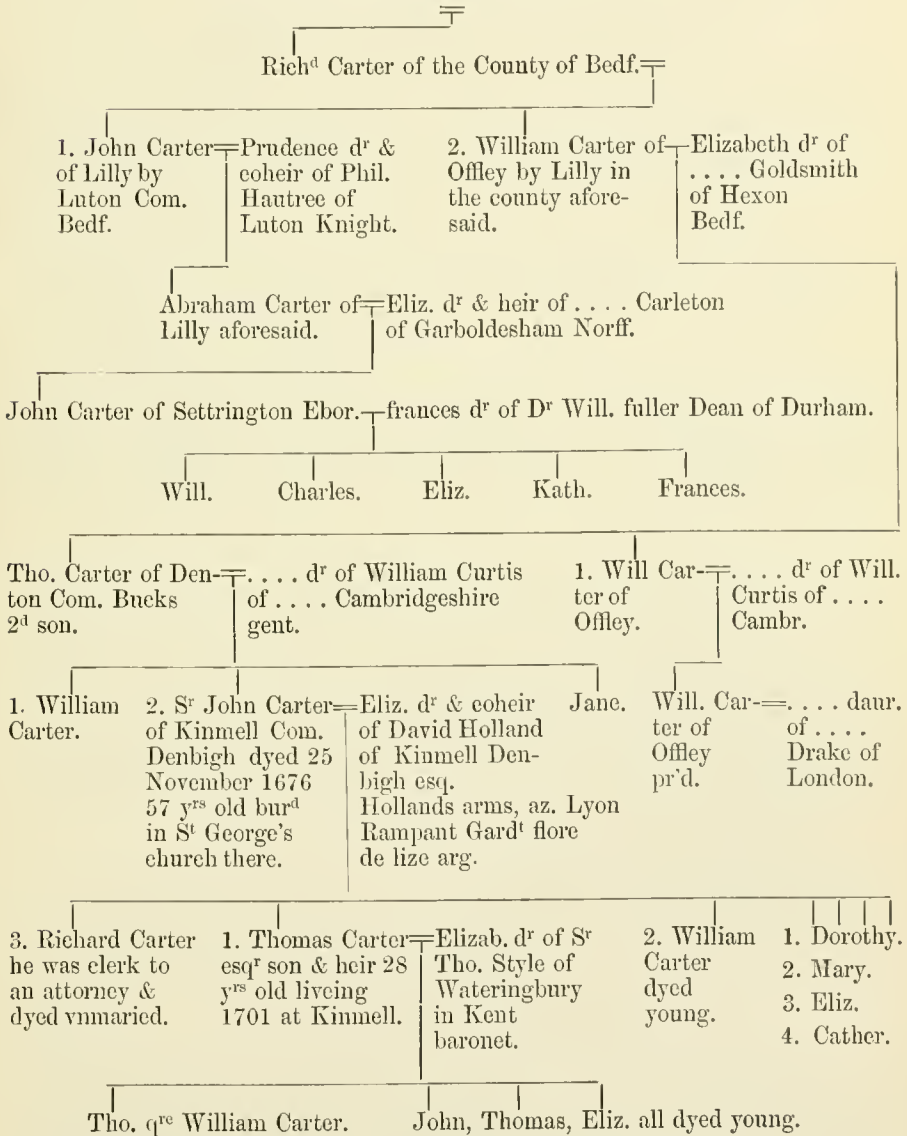 Richd Carter of the County of Bedf.
1. John Carter
of Lilly by
Luton Com.
Bedf.
Prudence dr &
coheir of Phil.
Hautree of
Luton Knight.
2. William Carter of
Offley by Lilly in
the county afore-
said.
Elizabeth dr of
. . . . Goldsmith
of Hexon
Bedf.
Abraham Carter of
Lilly aforesaid.
Eliz. dr & heir of . . . . Carleton
of Garboldesham Norff.
John Carter of Settrington Ebor.
frances dr of Dr Will. fuller Dean of Durham.
Will. Charles. Eliz. Kath. Frances.
Tho. Carter of Den-
ton Com. Bucks
2d son.
. . . . dr of William Curtis
of . . . . Cambridgeshire
gent.
1. Will Car-
ter of
Offley.
. . . . dr of Will.
Curtis of . . . .
Cambr.
1. William
Carter.
2. Sr John Carter
of Kinmell Com.
Denbigh dyed 25
November 1676
57 yrs old burd
in St George's
church there.
Eliz. dr & coheir
of David Holland
of Kinmell Den-
bigh esq.
Hollands arms, az. Lyon
Rampant Gardt flore
de lize arg.
Jane.
Will. Car-
ter of
Offley
pr'd.
. . . . daur.
of . . . .
Drake of
London.
3. Richard Carter
he was clerk to
an attorney &
dyed vnmaried.
1. Thomas Carter
esqr son & heir 28
yrs old liveing
1701 at Kinmell.
Elizab. dr of Sr
Tho. Style of
Wateringbury
in Kent
baronet.
2. William
Carter
dyed
young.
1. Dorothy.
2. Mary.
3. Eliz.
4. Cather.
Tho. qre William Carter.
John, Thomas, Eliz. all dyed young.